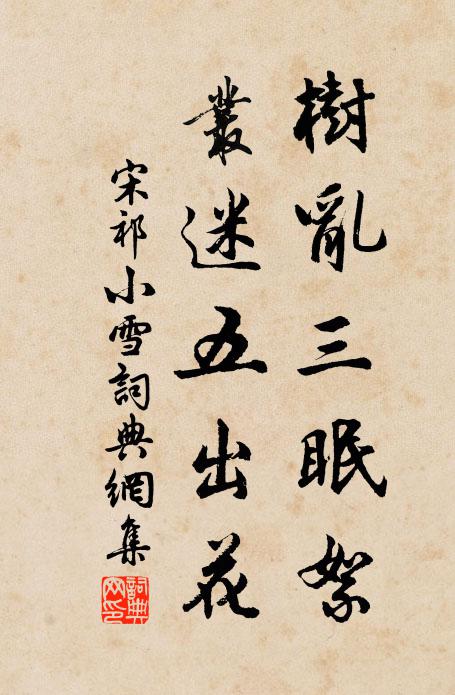 樹亂三眠絮
叢迷五出花
宋祁小雪詞典網集
詞典网印